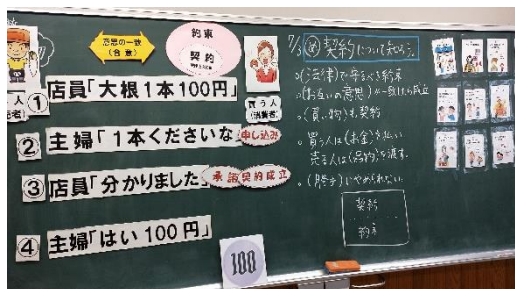 意思の一致
(合意)
約束
契約
① 店員「大根1本100円」
買う人
(消費者)
② 主婦「1本くださいな」 申し込み
③ 店員「分かりました」 承諾 契約成立
④ 主婦「はい100円」
100
7/3 め 契約について知ろう。
○(法律)で守るべき約束
○(お互いの意思)が一致したら成立
○(買い物)も契約
○買う人は(お金)を払い
売る人は(品物)を渡す。
○(勝手)にやめられない
契約
約束